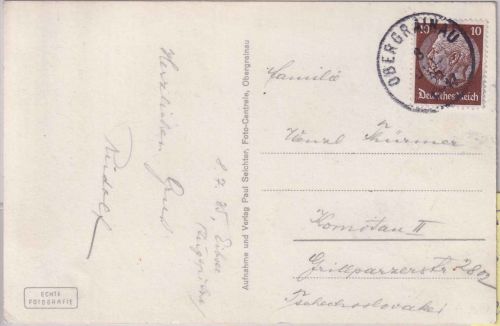 Herzlichen Gruß
Rudolf
8.7.35, Eibsee
Zugspitze
Aufnahme und Verlag Paul Selchter, Foto-Centrale, Obergrainau
ECHTE
FOTOGRAFIE
OBERGRAINAU
10 10
Deutsches Reich
Familie
Wenzl Thürmer
Komotau II
Grillparzerstr. 2802
Tschechoslovakei